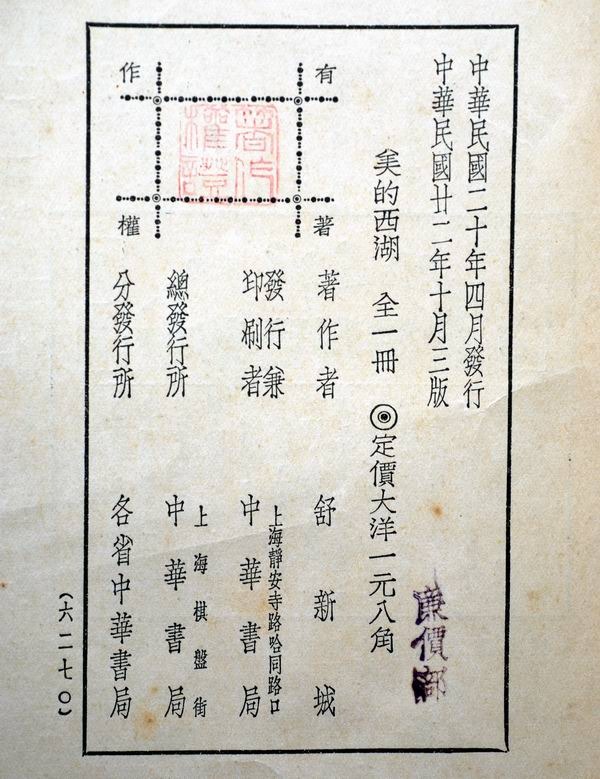 中華民國二十年四月發行
中華民國廿二年十月三版
美的西湖 全一冊 ◎定價大洋一元八角
廉價部
有著作權
著作權證
著作者 舒新城
發行兼印刷者 中華書局
上海靜安寺路哈同路口
總發行所 中華書局
上海棋盤街
分發行所 各省中華書局
(六二七〇)